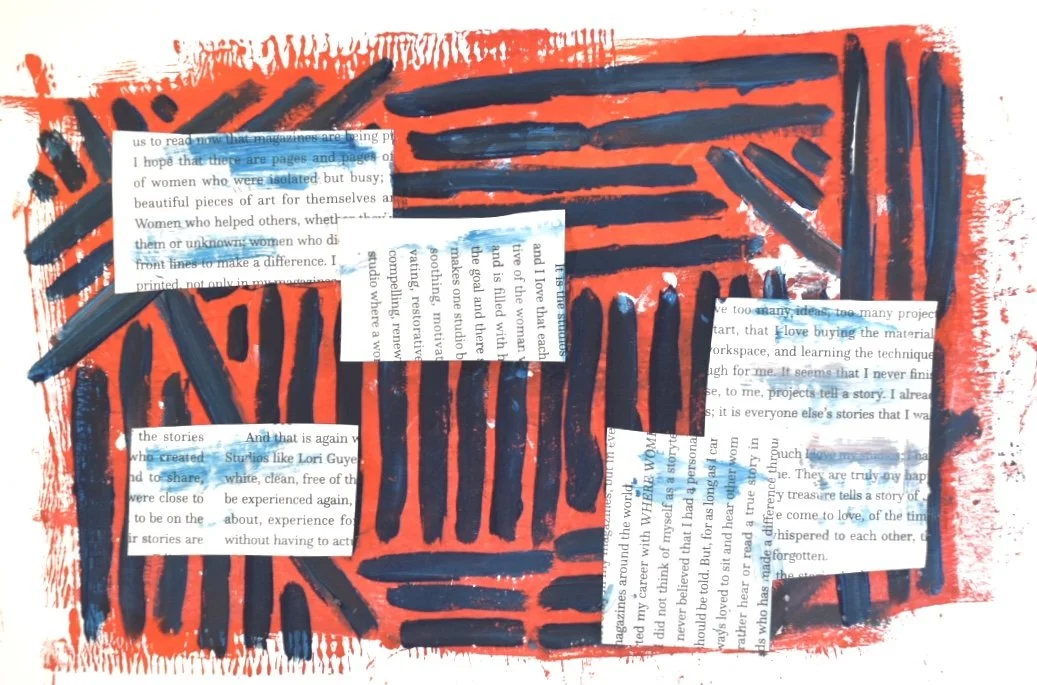 us to read now that magazines are being
I hope that there are pages and pages
of women who were isolated but busy;
beautiful pieces of art for themselves
Women who helped others,
them or unknown; women who
front lines to make a difference. I
printed, not only in my magazines
It is the studios
and I love that each
tive of the woman
and is filled with
the goal and there
makes one studio
soothing, motivat
vating, restorative
compelling, renew
studio where a
ve too many ideas, too many project
tart, that I love buying the material
workspace, and learning the technique
ugh for me. It seems that I never
se, to me, projects tell a story. I
s; it is everyone else's stories that I
the stories
who created
nd to share,
were close to
to be on the
ir stories are
And that is again
Studios like Lori Guye
white, clean, free of
be experienced again,
about, experience
without having to
my magazines, but in
magazines around the world.
ted my career with WHERE WOME
did not think of myself as a
never believed that I had a persona
hould be told. But, for as long as I
ways loved to sit and hear other wom
rather hear or read a true story in
ds who has made a difference
uch I love my studios; I
ne. They are truly my
ry treasure tells a story of
e come to love, of the
whispered to each other,
forgotten.
the